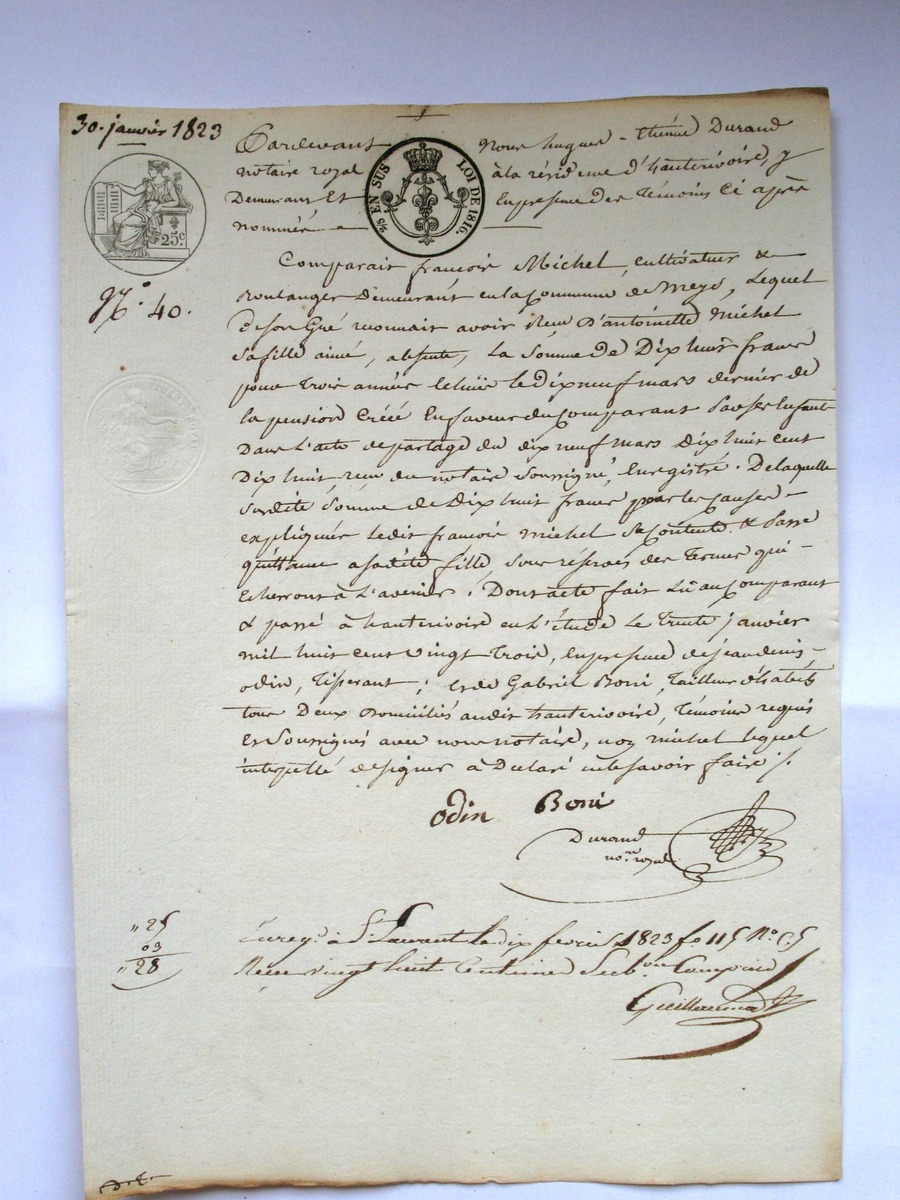 30. janvier 1823
Pardevant Nous hugues-thénné Durand
notaire royal à la résidence d'hauterivoire, y
Demeurant Et En presence des témoins Ci après
nommés
2/5 EN SUS LOI DE 1816.
25c
N.° 40.
Comparait francois Michel, cultivateur &
Boulanger Demeurant en la Commune de meys, Lequel
de son Gré reconnait avoir Reçu D'antoinette Michel
sa fille ainée, absente, La Somme de Dix huit francs
pour trois années echuës le dix neuf mars dernier de
la pension Créée En faveur du Comparant par ses Enfants
Dans L'acte de partage du dix neuf mars Dix huit cent
Dix huit reçu du notaire Soussigné, Enregistré. De laquelle
susdite Somme de Dix huit francs pour les causes
expliquées ledit francois michel se Contente & passe
quittance a sadite fille, sous réserves des Termes qui
Echerront à L'avenir. Dont acte fait Lu au Comparant
& passé à hauterivoire en L'étude Le trente janvier
mil huit cent vingt trois, En presence de jean denis
odin, tisserant; et de Gabriel Boni, tailleur d'habits
tous Deux Domiciliés audit hauterivoire, témoins requis
Et Soussignés avec nous notaire, non michel lequel
interpellé de signer à Déclaré ne le savoir faire /.
odin Boni
Durand
no.re royal
" 25
03
" 28
Enreg.é à St. Laurent le dix fevrier 1823 fo 115 R.o C. 5
Reçu vingt huit Centimes Sub.on Comprise
Guillermin